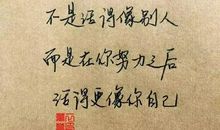 不是活得像别人
而是在你努力之后
活得更像你自己